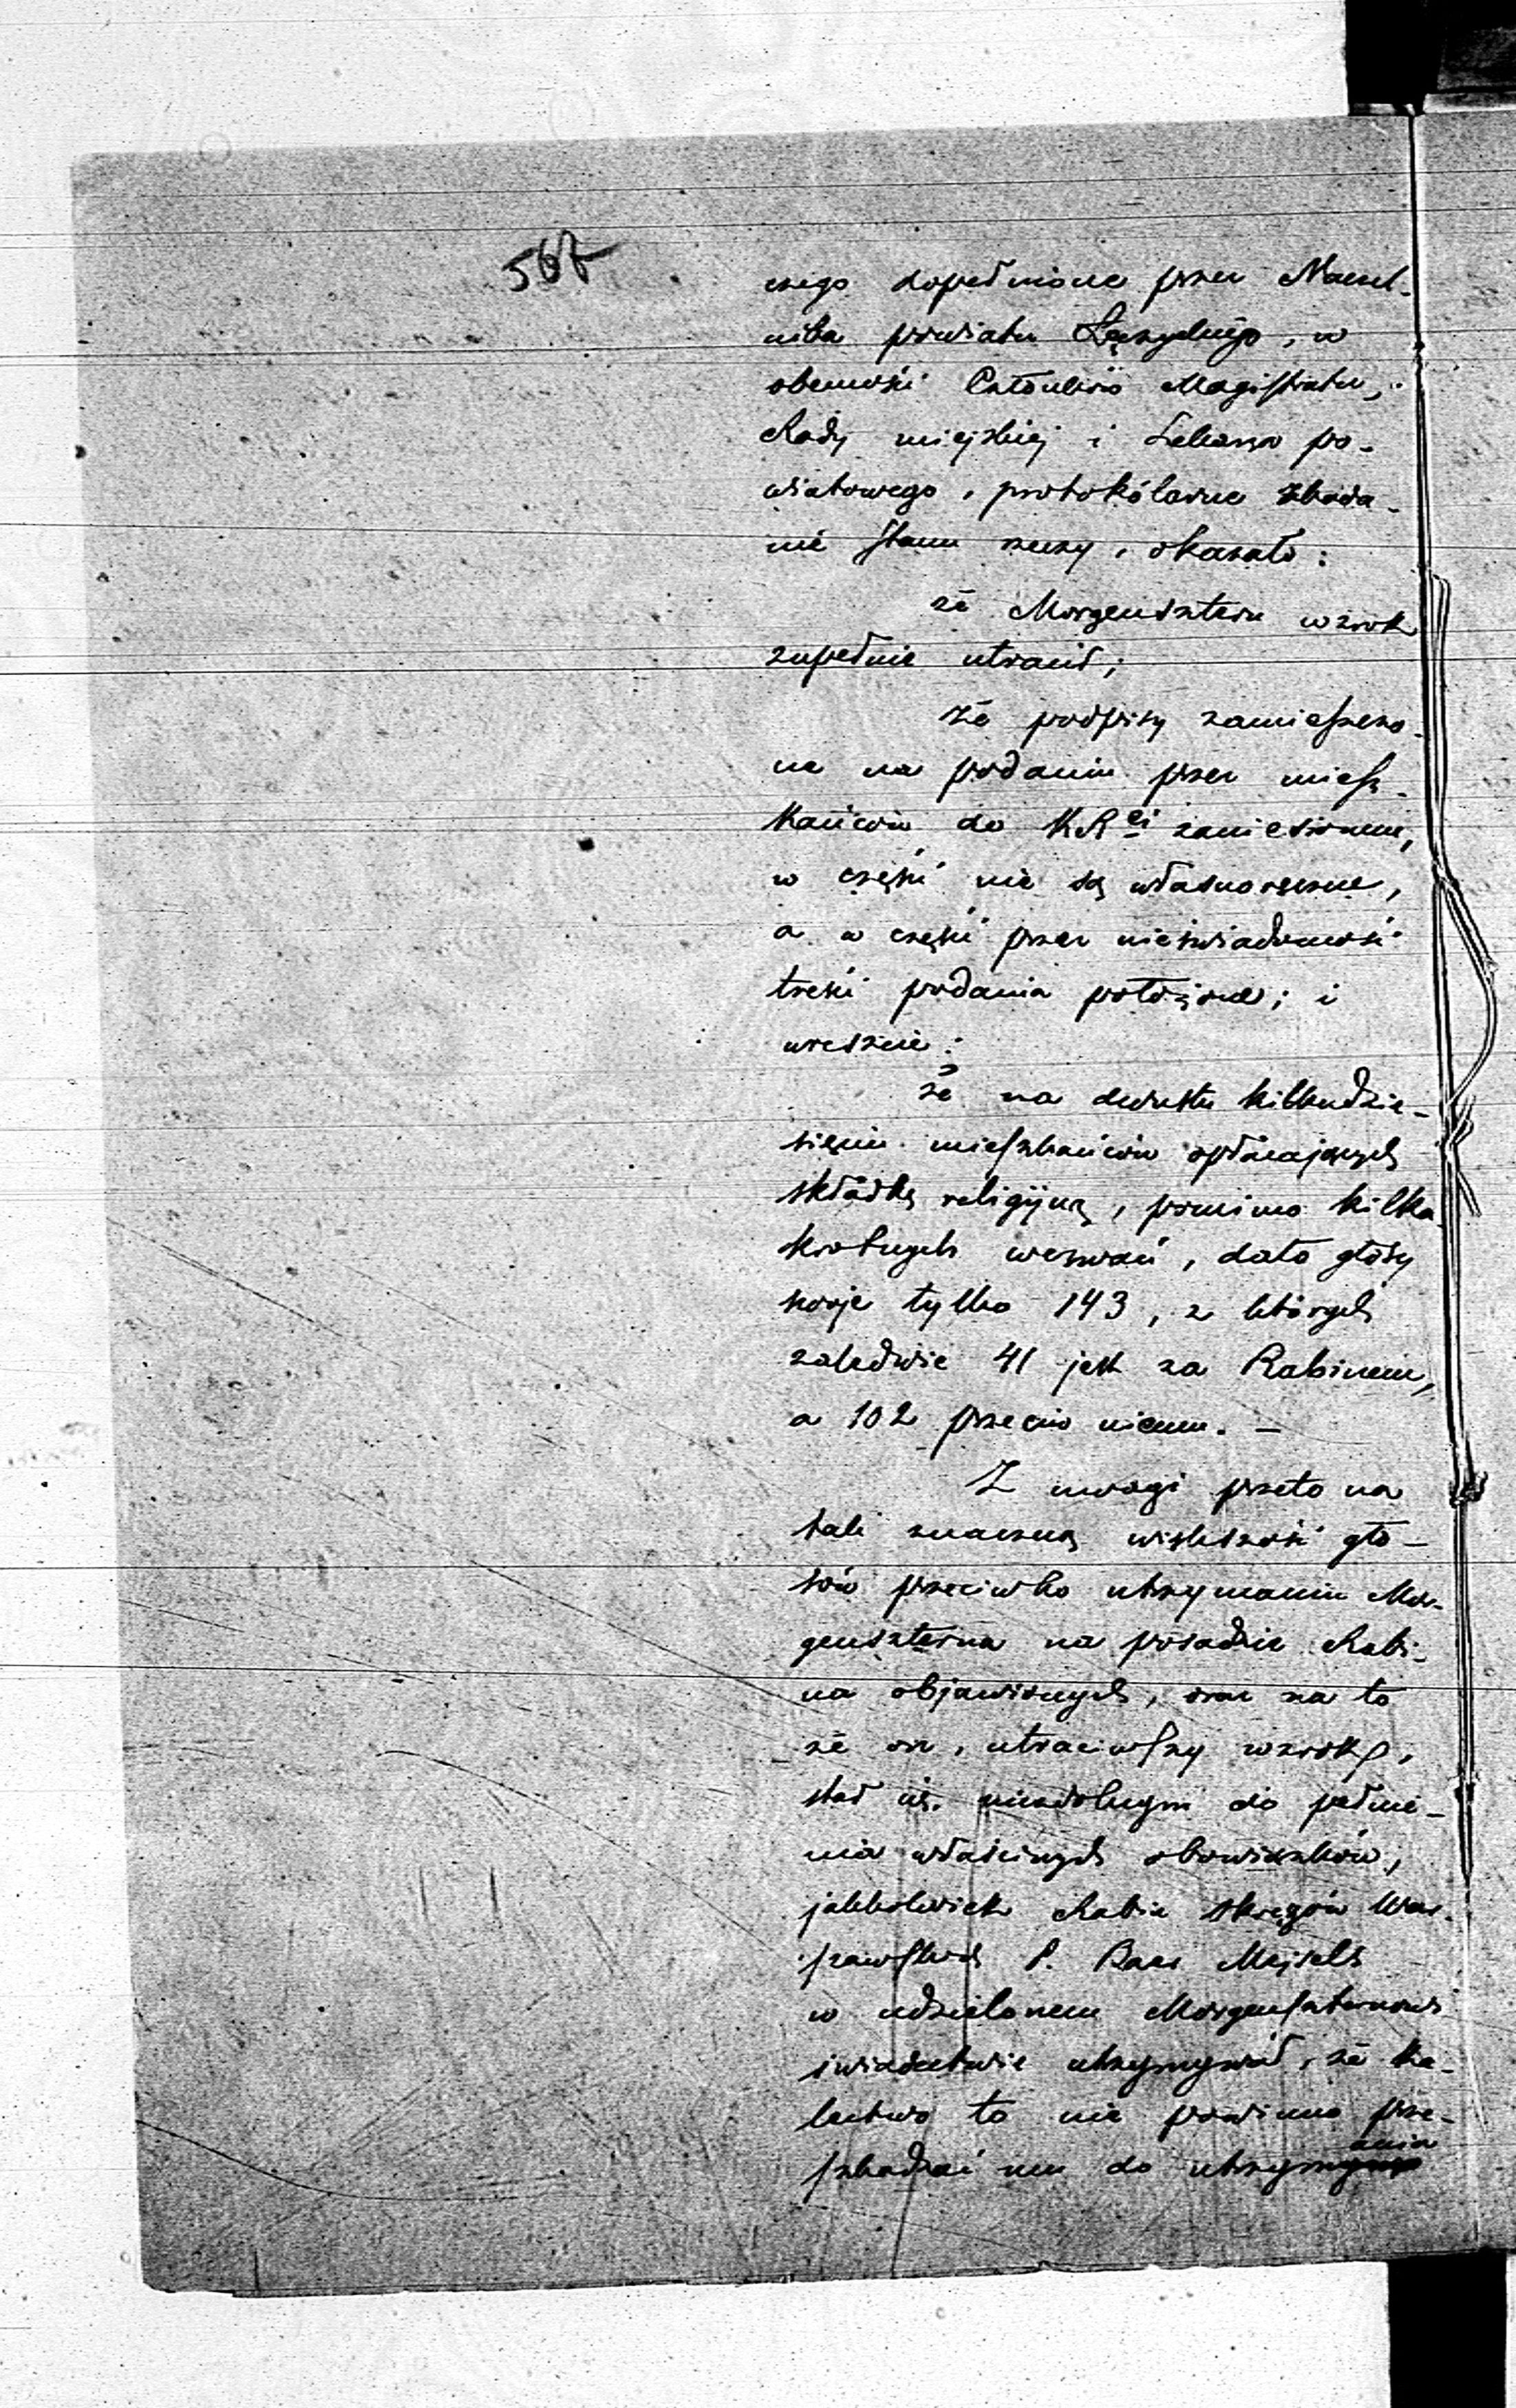 567
czego dopełnione przez Naczel-
nika powiatu Łęczyckiego, w
obecności Członków Magistratu,
Rady miejskiej i Lekarza po-
wiatowego, protokólarne zbada-
nie stanu rzeczy, okazało:
że Morgensztern wzrok
zupełnie utracił;
że podpisy zamieszczo-
ne na podaniu przez miesz-
kańców do KR ei zaniesionem,
w części nie są własnoręczne,
a w części przez nieświadomość
treści podania położone; i
wreszcie:
że na dwustu kilkudzie-
sięciu mieszkańców opłacających
składkę religijną, pomimo kilka
krotnych wezwań, dało głosy
swoje tylko 143, z których
zaledwie 41 jest za Rabinem,
a 102 przeciw niemu. —
Z uwagi przeto na
tak znaczną większość gło-
sów przeciwko utrzymaniu Mor-
genszterna na posadzie Rabi-
na objawionych, oraz na to
że on, utraciwszy wzrok,
stał się niezdolnym do pełnie-
nia właściwych obowiązków,
jakkolwiek Rabin Okręgów War-
szawskich P. Baer Mejsels
w udzielonem Morgenszternowi
świadectwie utrzymywał, że ka-
lectwo to nie powinno prze-
szkadzać mu do utrzymania